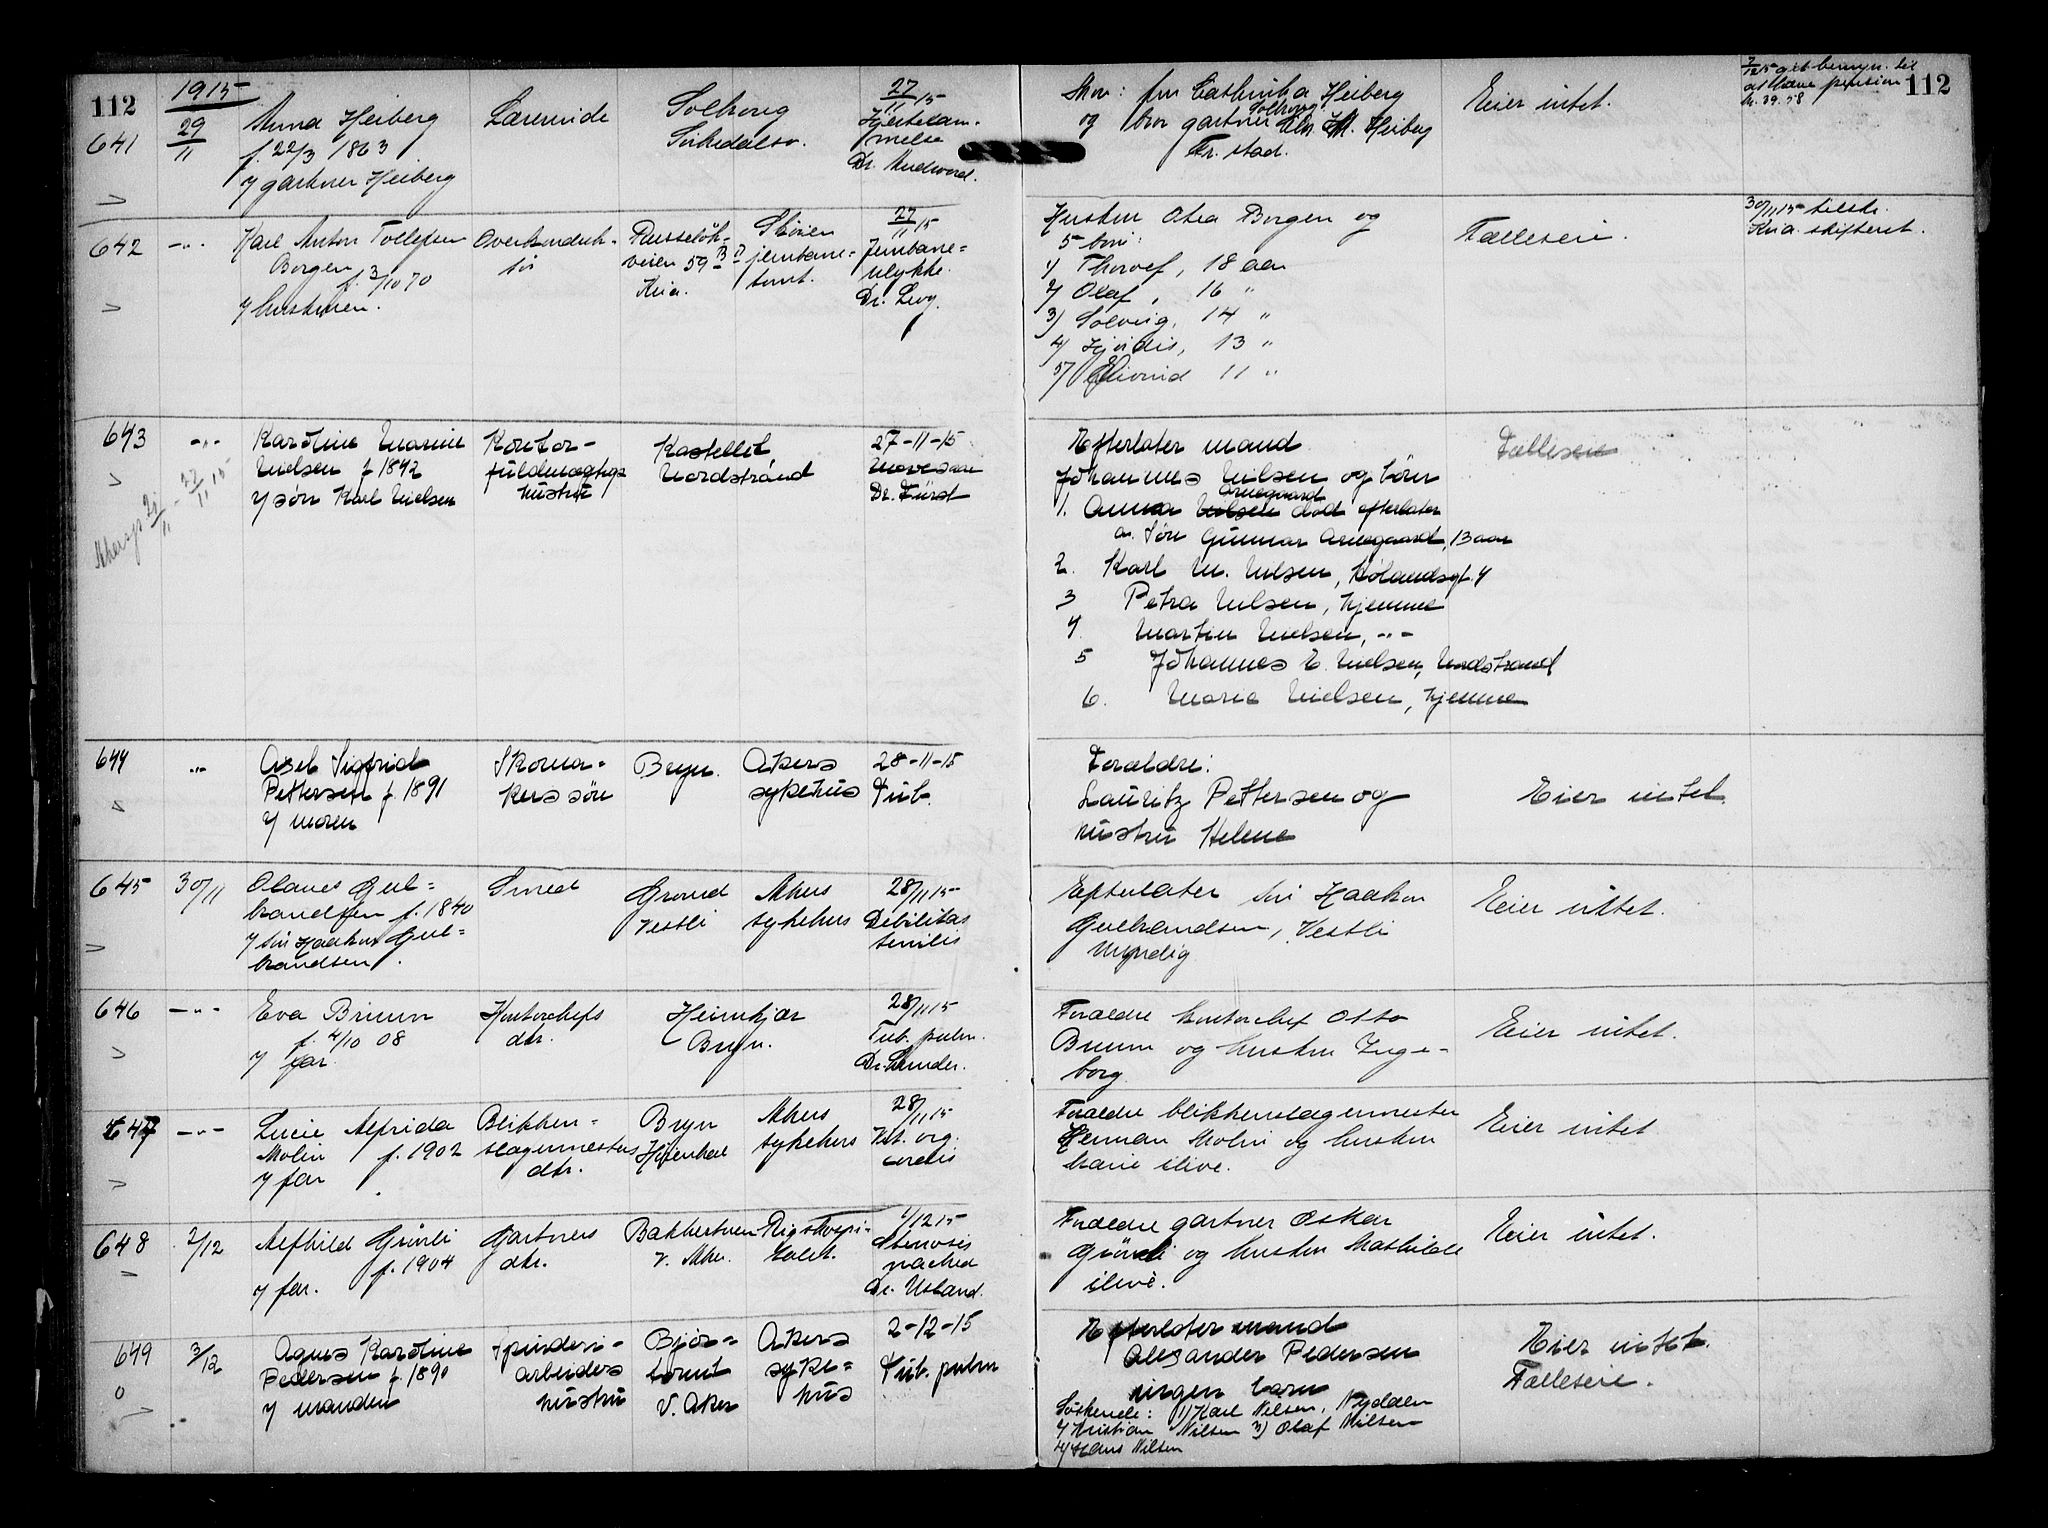 112
1915
29/11
641
Anna Heiberg
f. 22/3 1863
v/ gartner Heiberg
Lærerinde
Solhaug
Sørkedalsv.
27/11 15
Hjertelam-
melse
Dr.
Mor: fru Cathinka Heiberg
og bror gartner Chr. H. Heiberg
Solhaug
Fr. stad.
Eier intet.
7/12 15 git bemyn. til
at hæve pension
112
642
-"-
Karl Anton Tollefsen
Borgen f. 3/10 70
v/ hustruen.
Overkonduk-
tør
Russeløk-
veien 59 B
Kria.
Skøien
jernbane-
tomt.
27/11 15
Jernbane-
ulykke.
Dr. Levy.
Hustru Otea Borgen og
5 brn:
1/ Thorolf, 18 aar
2/ Olaf, 16 "
3/ Solveig, 14 "
4/ Hjørdis, 13 "
5/ Eivind 11 "
Fælleseie.
30/11 15 tilskr.
Kria. skifteret.
643
-"-
Karoline Marie
Nielsen f 1842
v/ søn Karl Nielsen
Kontor-
fuldmægtigs
hustru
Kastellet
Nordstrand
27-11-15
Dr. Fürst
Akersp 21/11 - 27/11 15
Efterlater mand
Johannes Nilsen og børn
1. Anna Nilsen Arnegaard død efterlater
a. Søn Gunnar Arnegaard, 13 aar
2. Karl M. Nilsen, Hølandsgt. 4
3 Petra Nilsen, hjemme
4. Martin Nielsen, -"-
5 Johannes E. Nielsen, Nordstrand
6. Marie Nielsen, hjemme
Fælleseie
644
"
Axel Sigfrid
Pettersen f. 1891
v/ moren
Skoma-
kers søn
Bryn.
Akers
sykehus
28-11-15
Tub.
Forældre:
Lauritz Pettersen og
hustru Helene
Eier intet.
645
30/11
Olaves Gul-
brandsen f. 1840
v/ søn Haakon Gul-
brandsen.
Smed
Grorud
Vestli
Akers
sykehus
28/11 15
Debilitas
senilis
Efterlater søn Haakon
Gulbrandsen, Vestli
Myndig
Eier intet.
646
-"-
Eva Bruun
f. 4/10 08
v/ far.
Kontorchefs
dtr.
Heimkjær
Bryn.
28/11 15
Tub. pulm.
Dr. Sunder.
Forældre kontorchef Otto
Bruun og hustru Inge-
borg.
Eier intet.
647
-"-
Lucie Alfrida
Molin f. 1902
v/ far
Blikken-
slagermesters
dtr.
Bryn
Akers
sykehus
28/11 15
Vit. org.
cordis
Forældre blikkenslagermester
Herman Molin og hustru
Marie ilive.
Eier intet
648
2/12
Alfhild Grønli
f. 1904
v/ far.
Gartners
dtr.
Bakkestuen
v. Aker.
Rigshospi-
talet.
1/12 15
Stenosis
Dr. Ustand.
Forældre gartner Oskar
Grønli og hustru Mathilde
ilive.
Eier intet.
649
3/12
Agnes Karoline
Pedersen f. 1890
v/ manden
Spinderi-
arbeiders
hustru
Bjøl-
tomt
v. Aker
Akers
syke-
hus
2-12-15
Tub. pulm
Efterlater mand
Alexander Pedersen
ingen barn
Søskende: 1) Karl Nilsen, Nydalen
2/ Kristian Nilsen 3) Olaf Nilsen
4/ Hans Nilsen
Eier intet.
Fælleseie.